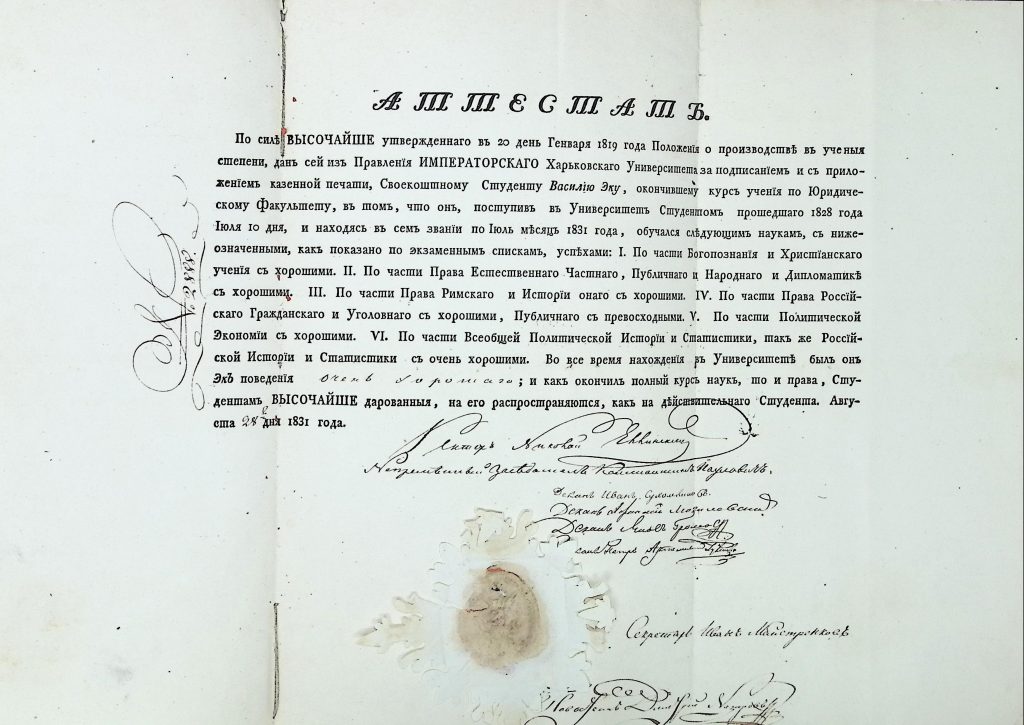 АТТЕСТАТЪ.
По силѣ ВЫСОЧАЙШЕ утвержденнаго въ 20 день Генваря 1819 года Положенія о производствѣ въ ученыя
степени, данъ сей изъ Правленія ИМПЕРАТОРСКАГО Харьковскаго Университета за подписаніемъ и съ прило-
женіемъ казенной печати, Своекоштному Студенту Василію Эку, окончившему курсъ ученія по Юридиче-
скому Факультету, въ томъ, что онъ, поступивъ въ Университетъ Студентомъ прошедшаго 1828 года
Іюля 10 дня, и находясь въ семъ званіи по Іюль мѣсяцъ 1831 года, обучался слѣдующимъ наукамъ, съ ниже-
означенными, какъ показано по экзаменнымъ спискамъ, успѣхами: I. По части Богопознанія и Христіанскаго
ученія съ хорошими. II. По части Права Естественнаго Частнаго, Публичнаго и Народнаго и Дипломатикѣ
съ хорошими. III. По части Права Римскаго и Исторіи онаго съ хорошими. IV. По части Права Россій-
скаго Гражданскаго и Уголовнаго съ хорошими, Публичнаго съ превосходными. V. По части Политической
Экономіи съ хорошими. VI. По части Всеобщей Политической Исторіи и Статистики, такъ же Россій-
ской Исторіи и Статистики съ очень хорошими. Во все время нахожденія въ Университетѣ былъ онъ
Экъ поведенія очень хорошаго; и какъ окончилъ полный курсъ наукъ, то и права, Сту-
дентамъ ВЫСОЧАЙШЕ дарованныя, на его распространяются, какъ на дѣйствительнаго Студента. Авгу-
ста 28 дня 1831 года.
Ректоръ Николай Еллинскій
Непремѣнный Засѣдатель Константинъ Павловичъ.
Деканъ Иванъ
Деканъ
Деканъ
Секретарь Иванъ